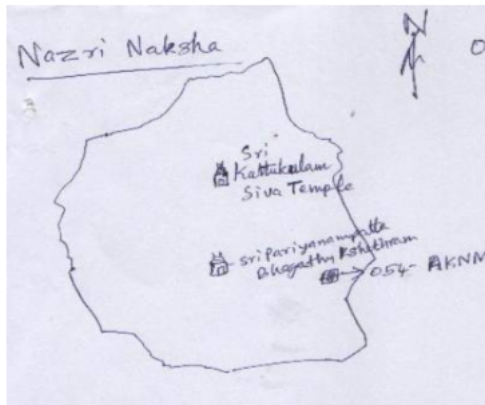 Nazri Naksha
N
Sri
Kattukulam
Siva Temple
Sri Pariyanampatta
Bhagathy Kshethram
054- AKNM